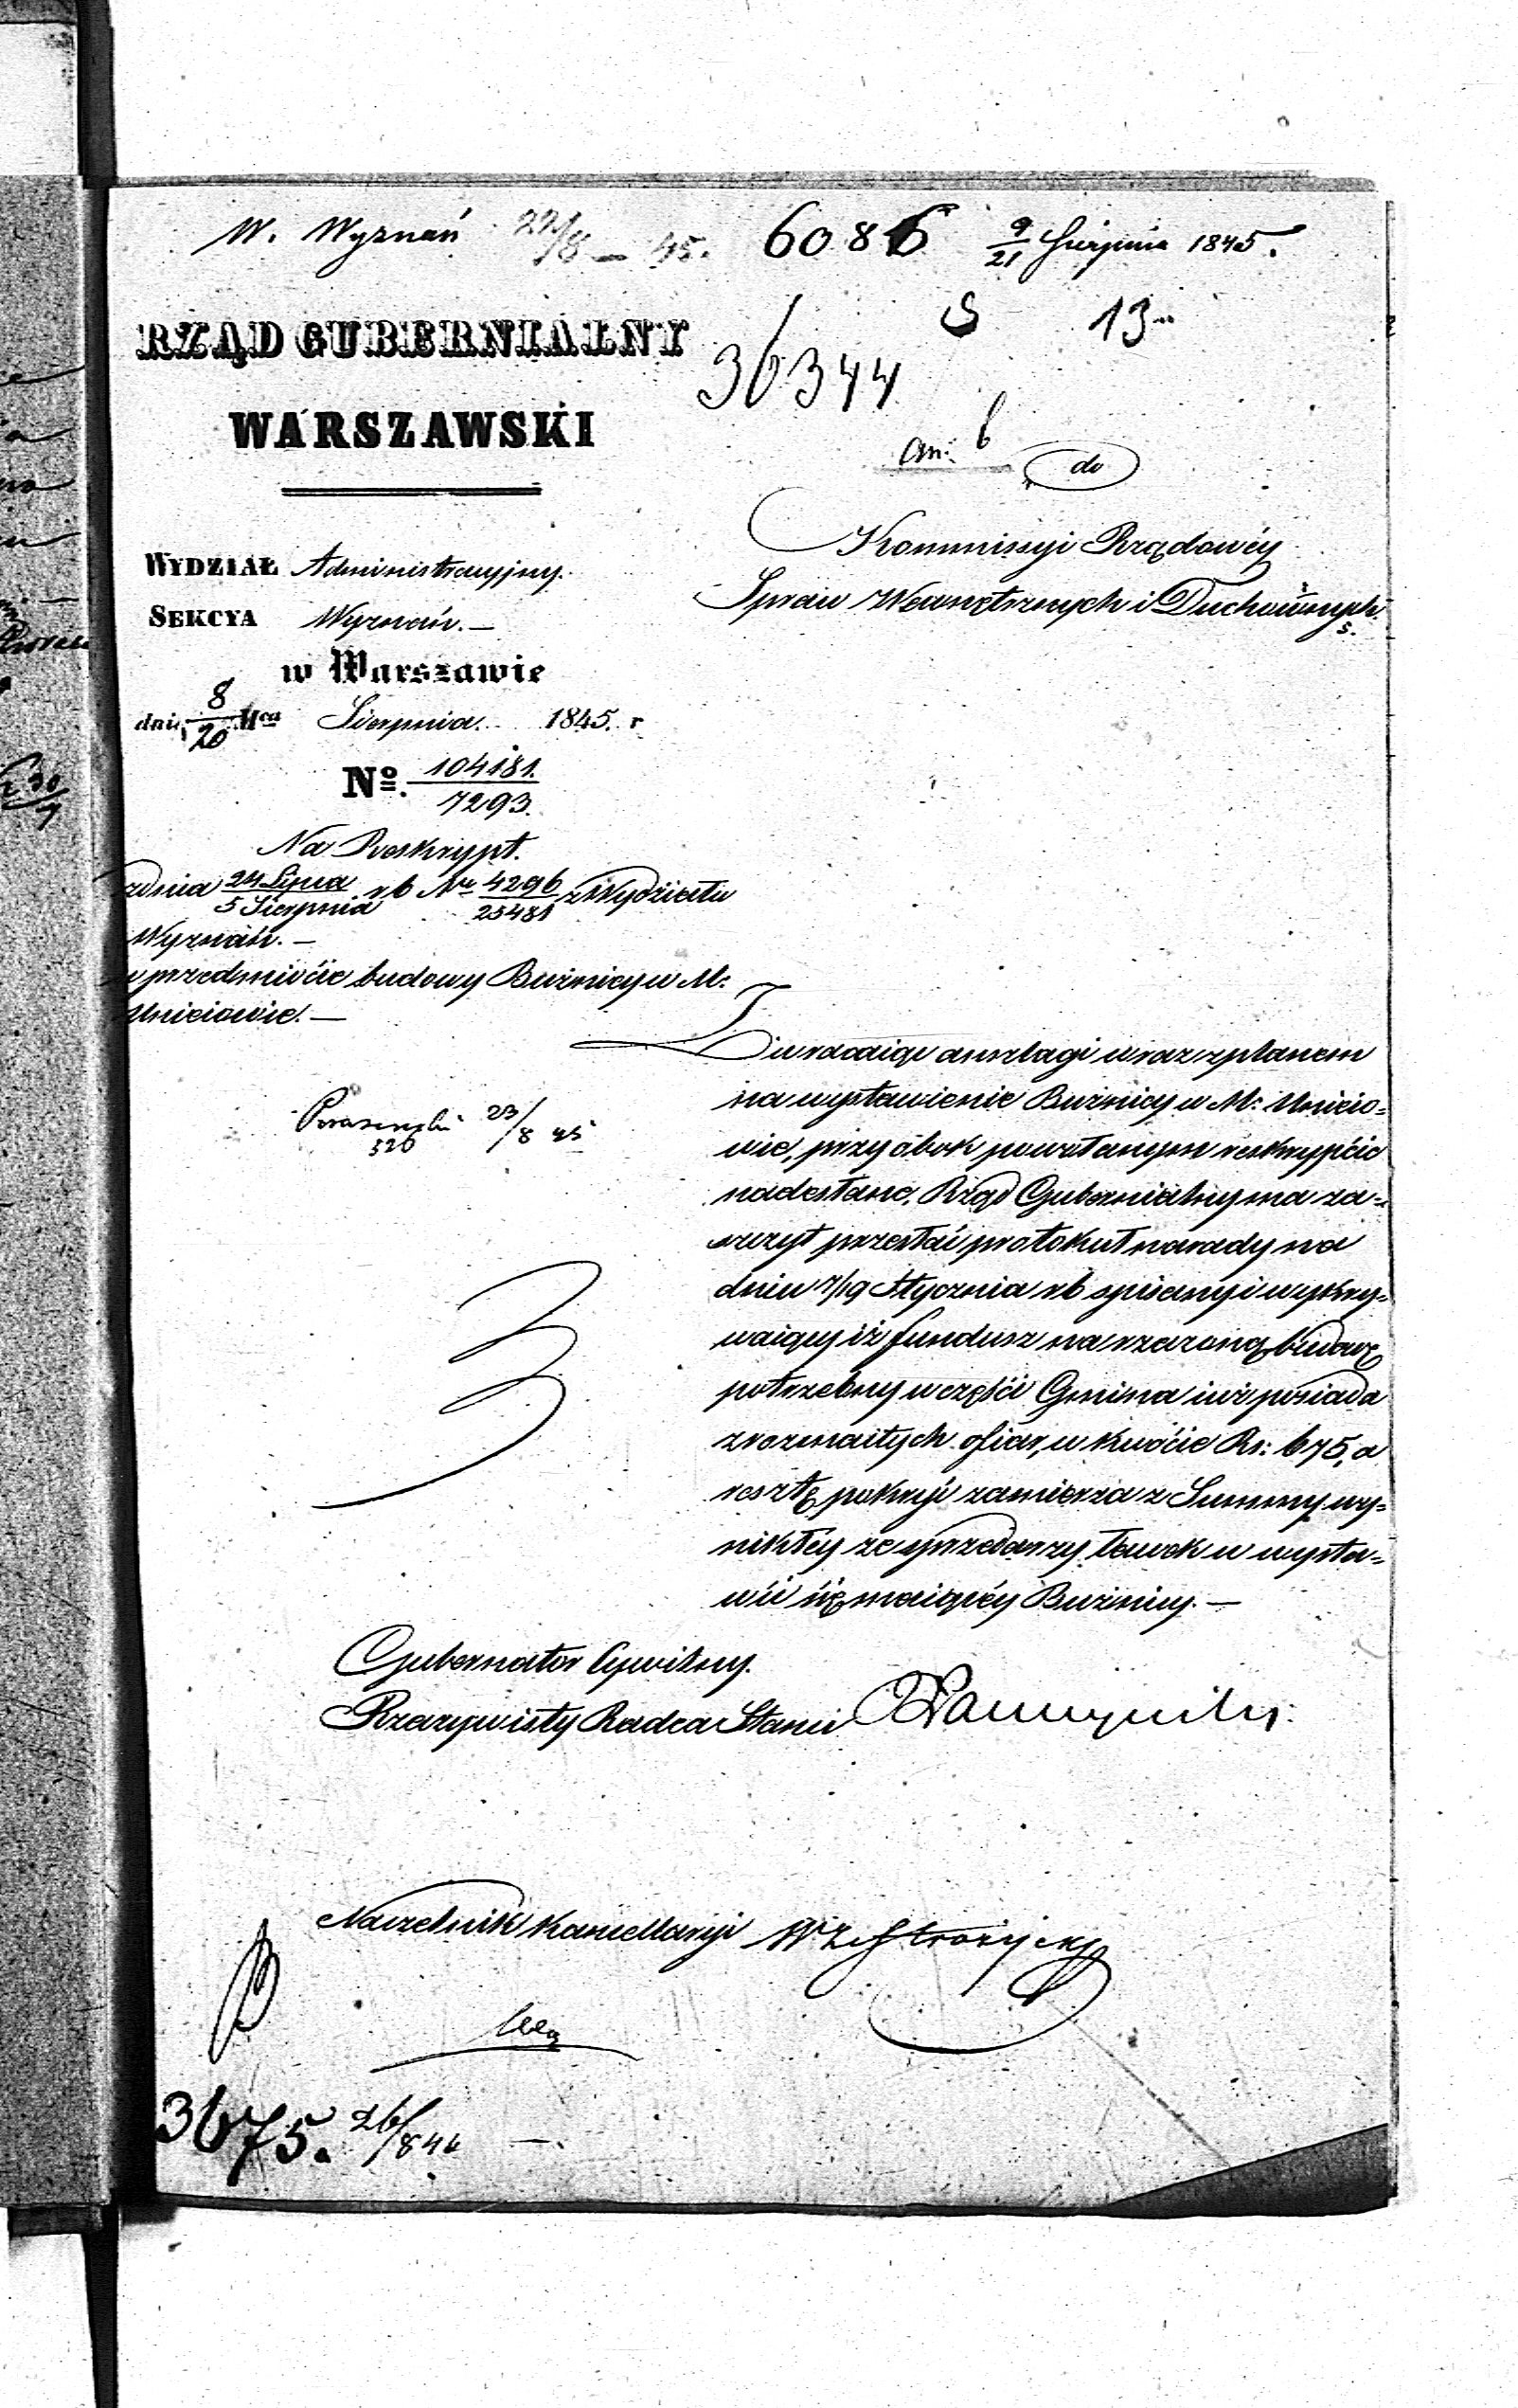 W. Wyznań 22/8 – 45. 6086 9/21 Sierpnia 1845.
S 13
36344
an: 6
do
RZĄD GUBERNIALNY
WARSZAWSKI
Kommissyi Rządowéy
Spraw Wewnętrznych i Duchownych.
WYDZIAŁ Administracyjny.
SEKCYA Wyznań. —
w Warszawie
dnia 8/20 Mca Sierpnia 1845. r
No. 104181./7293.
Na Reskrypt.
zdnia 24 Lipca/5 Sierpnia rb Nr 4296/25481 z Wydziału
Wyznań. —
w przedmioćie budowy Bużnicy w M:
Unieiowie. —
Zwracaiąc anszlagi wraz zplanem
na wystawienie Bużnicy w M: Unieio=
wie, przy obok powołanym reskrypćie
nadesłane, Rząd Gubernialny ma za=
szczyt przesłać protokuł narady na
dniu 7/19 Stycznia rb spisany i wykry=
waiący iż fundusz na rzeczoną budowę
potrzebny w częśći Gmina iuż posiada
zrozmaitych ofiar, w kwoćie Rs: 675, a
resztę pokryć zamierza z Summy wy=
nikłéy ze sprzedarzy ławek w wysta=
wić się maiącéy Bużnicy. —
23/8 45
320
Gubernator Cywilny.
Rzeczywisty Radca Stanu
Naczelnik Kancellaryi
3675. 26/8 46